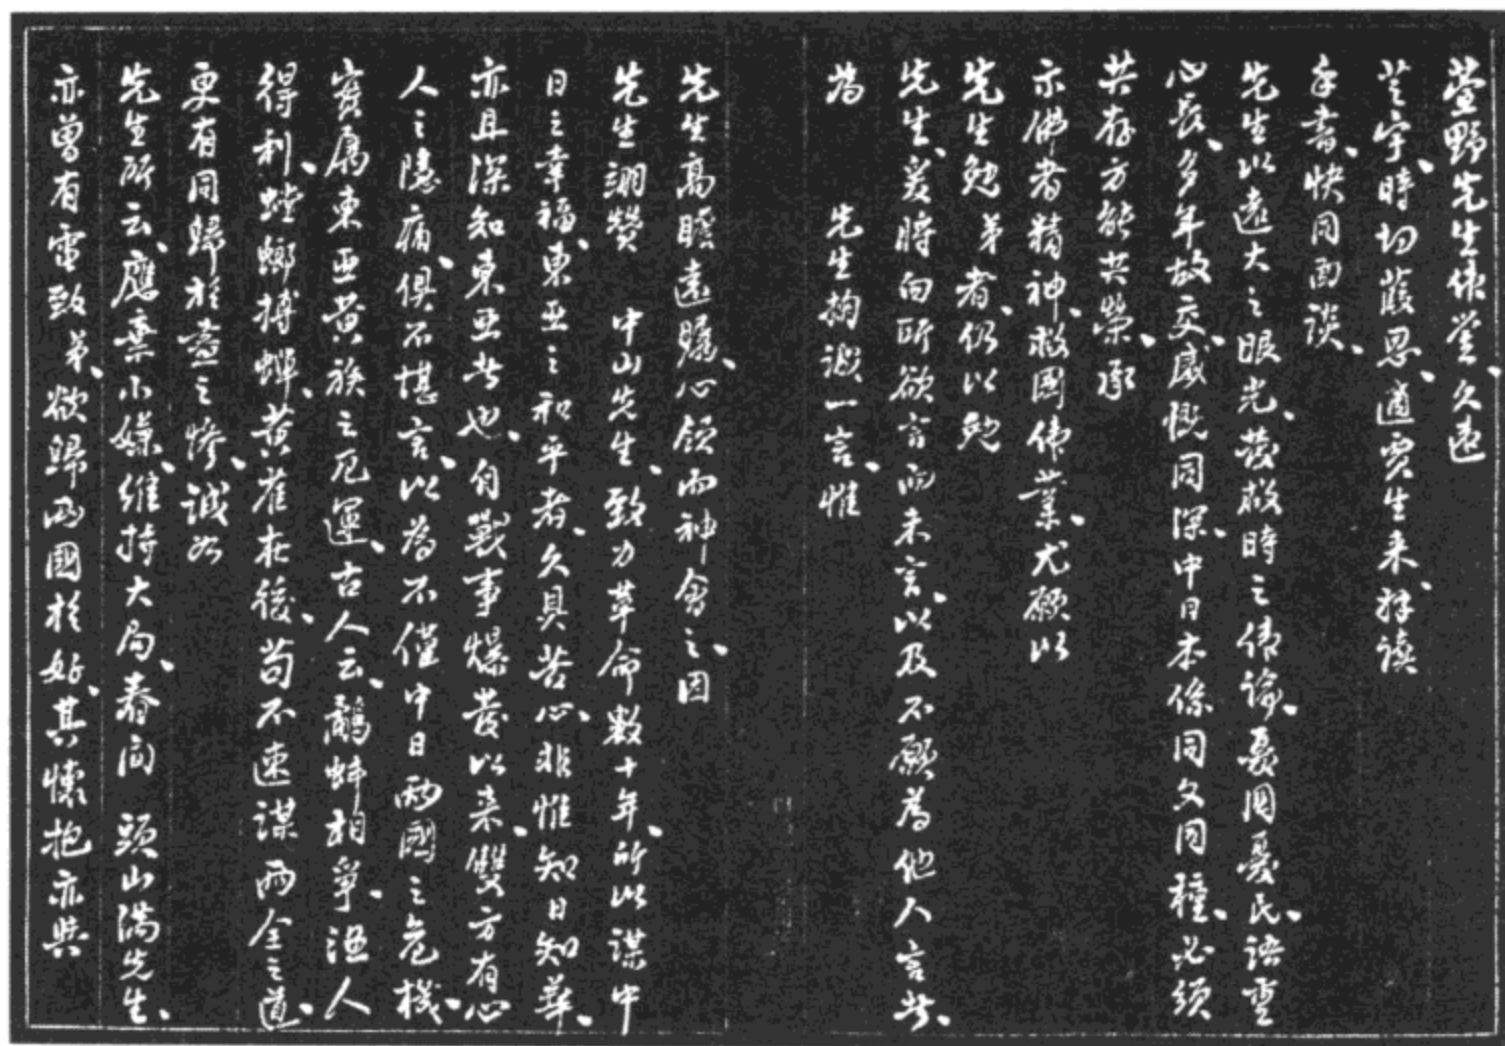 萱野先生偉鑒、久違
芝宇、時切葭思、適賈生来、拜讀
手書、快同面談、
先生以遠大之眼光、發救時之偉論、憂國憂民、語重
心長、多年故交、感慨同深、中日本係同文同種、必須
共存方能共榮、承
示佛者精神、救國偉業、尤願以
先生勉弟者、仍以勉
先生、爰將向所欲言而未言、以及不願為他人言者、
為 先生掬誠一言、惟
先生高瞻遠矚、心領而神會之、因
先生翊贊 中山先生、致力革命數十年、所以謀中
日之幸福、東亞之和平者、久具苦心、非惟知日知華、
亦且深知東亞者也、自戰事爆發以来、雙方有心
人之隱痛、俱不堪言、以為不僅中日兩國之危機、
實屬東亞黄族之厄運、古人云、鷸蚌相爭、漁人
得利、螳螂捕蟬、黄雀在後、苟不速謀兩全之道、
更有同歸於盡之慘、誠如
先生所云、應棄小嫌、維持大局、春间 頭山滿先生、
亦曾有電致弟、欲歸兩國於好、其懷抱亦與